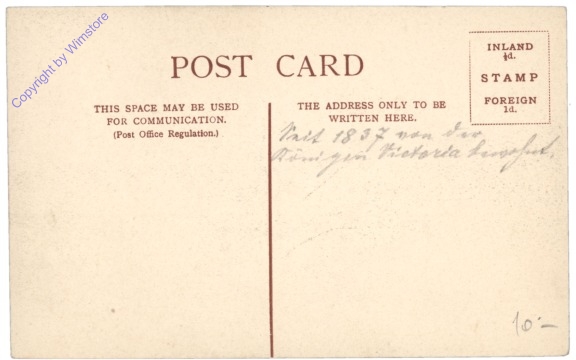 Copyright by Wimstore
POST CARD
THIS SPACE MAY BE USED
FOR COMMUNICATION.
(Post Office Regulation.)
THE ADDRESS ONLY TO BE
WRITTEN HERE.
INLAND
½d.
STAMP
FOREIGN
1d.
Seit 1837 von der
Königin Victoria bewohnt.
10.-